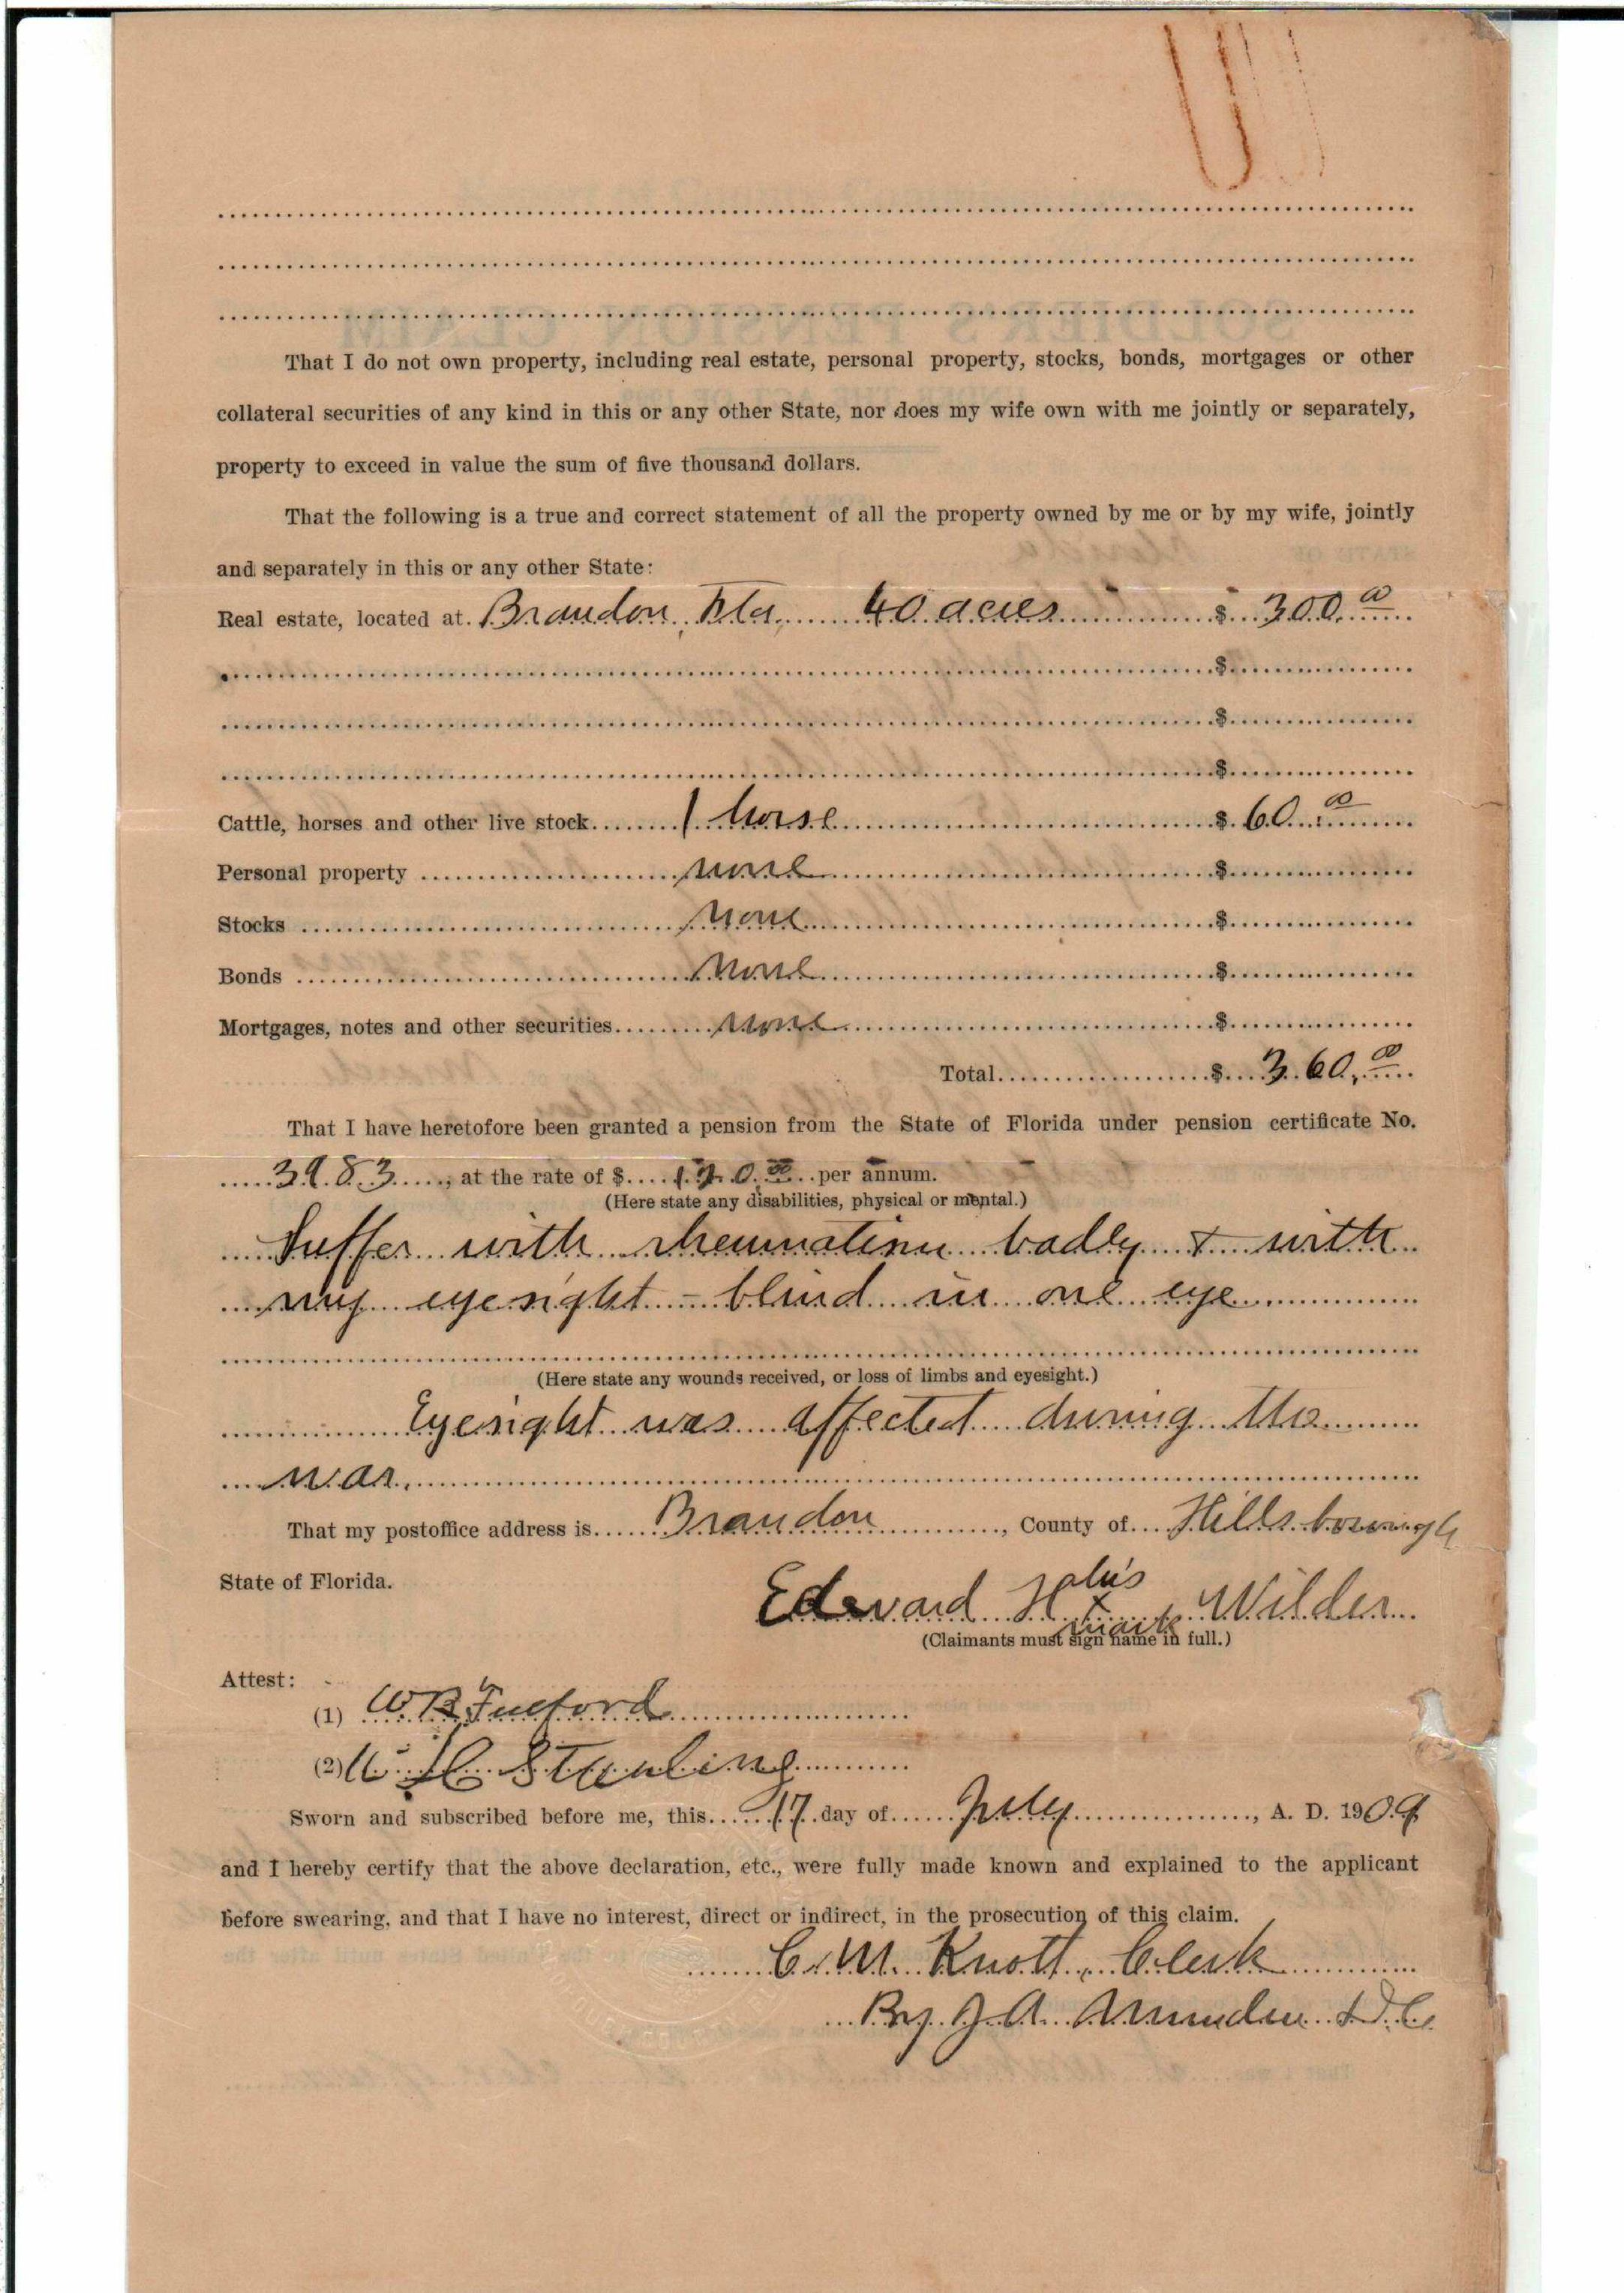 That I do not own property, including real estate, personal property, stocks, bonds, mortgages or other
collateral securities of any kind in this or any other State, nor does my wife own with me jointly or separately,
property to exceed in value the sum of five thousand dollars.
That the following is a true and correct statement of all the property owned by me or by my wife, jointly
and separately in this or any other State:
Real estate, located at Brandon, Fla, 40 acres $ 300.00
$
$
$
Cattle, horses and other live stock 1 horse $ 60.00
Personal property none $
Stocks None $
Bonds None $
Mortgages, notes and other securities none $
Total $ 360.00
That I have heretofore been granted a pension from the State of Florida under pension certificate No.
3983, at the rate of $ 120.00 per annum.
(Here state any disabilities, physical or mental.)
Suffer with rheumatism badly & with
my eyesight - blind in one eye
(Here state any wounds received, or loss of limbs and eyesight.)
Eyesight was affected during the
war.
That my postoffice address is Brandon, County of Hillsborough
State of Florida.
Edward H his x mark Wilder
(Claimants must sign name in full.)
Attest:
(1) W. B. Fulford
(2) Starling
Sworn and subscribed before me, this 17 day of July, A. D. 1909
and I hereby certify that the above declaration, etc., were fully made known and explained to the applicant
before swearing, and that I have no interest, direct or indirect, in the prosecution of this claim.
C. M. Knott, Clerk
By J. A. D.C.